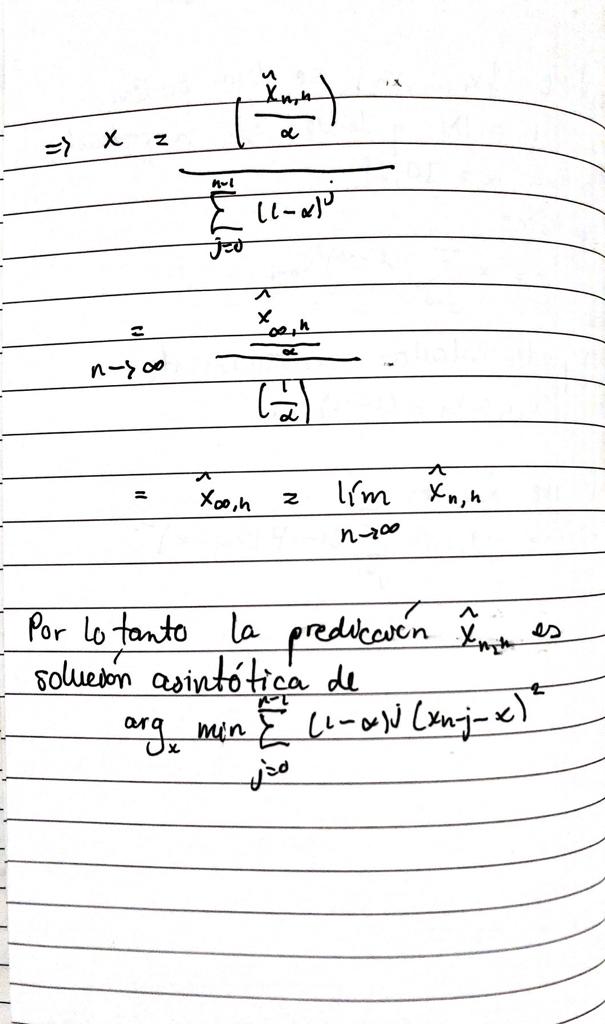 ⇒ x = ( x̂n,h / α ) / Σ_{j=0}^{n-1} (1-α)^j
= n→∞ ( x̂∞,h / α ) / ( 1/α )
= x̂∞,h = lím n→∞ x̂n,h
Por lo tanto la predicción x̂n,h es
solución asintótica de
arg x min Σ_{j=0}^{n-1} (1-α)^j (xn-j-x)²